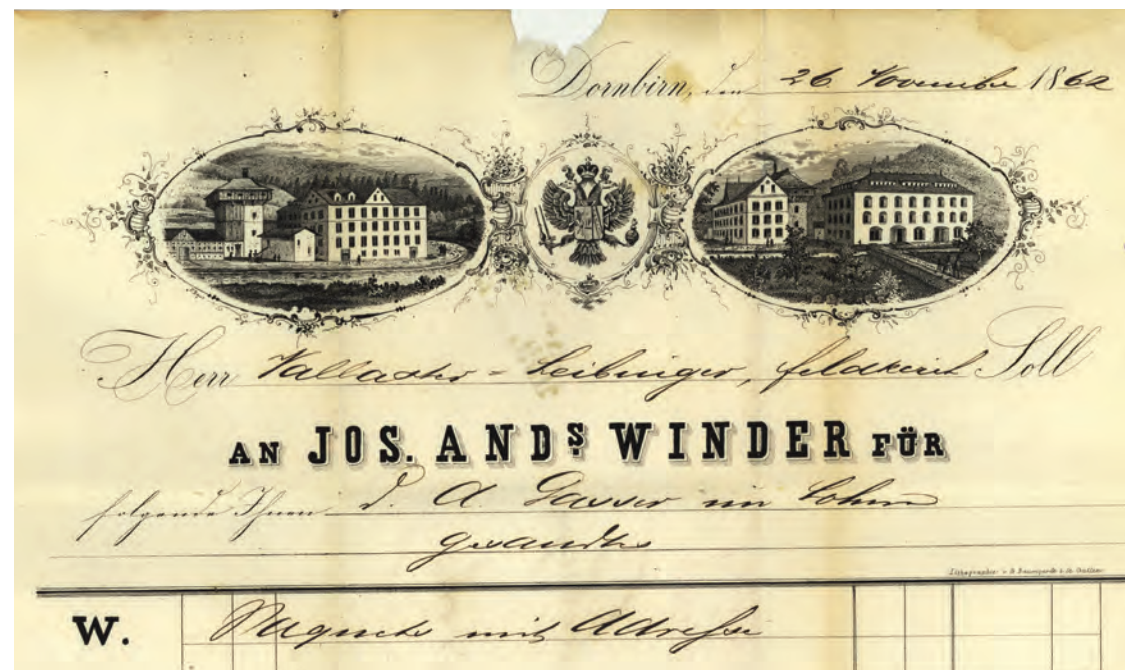 Dornbirn, den 26. November 1862
Herr Vallaster = Leibinger, Feldkirch Soll
AN JOS. ANDS WINDER FÜR
folgende Ihnen d. A. Gasser im Lohn
gesandte
Lithographie v. B. Baumgardt i. St. Gallen
W. Paquete mit Adresse